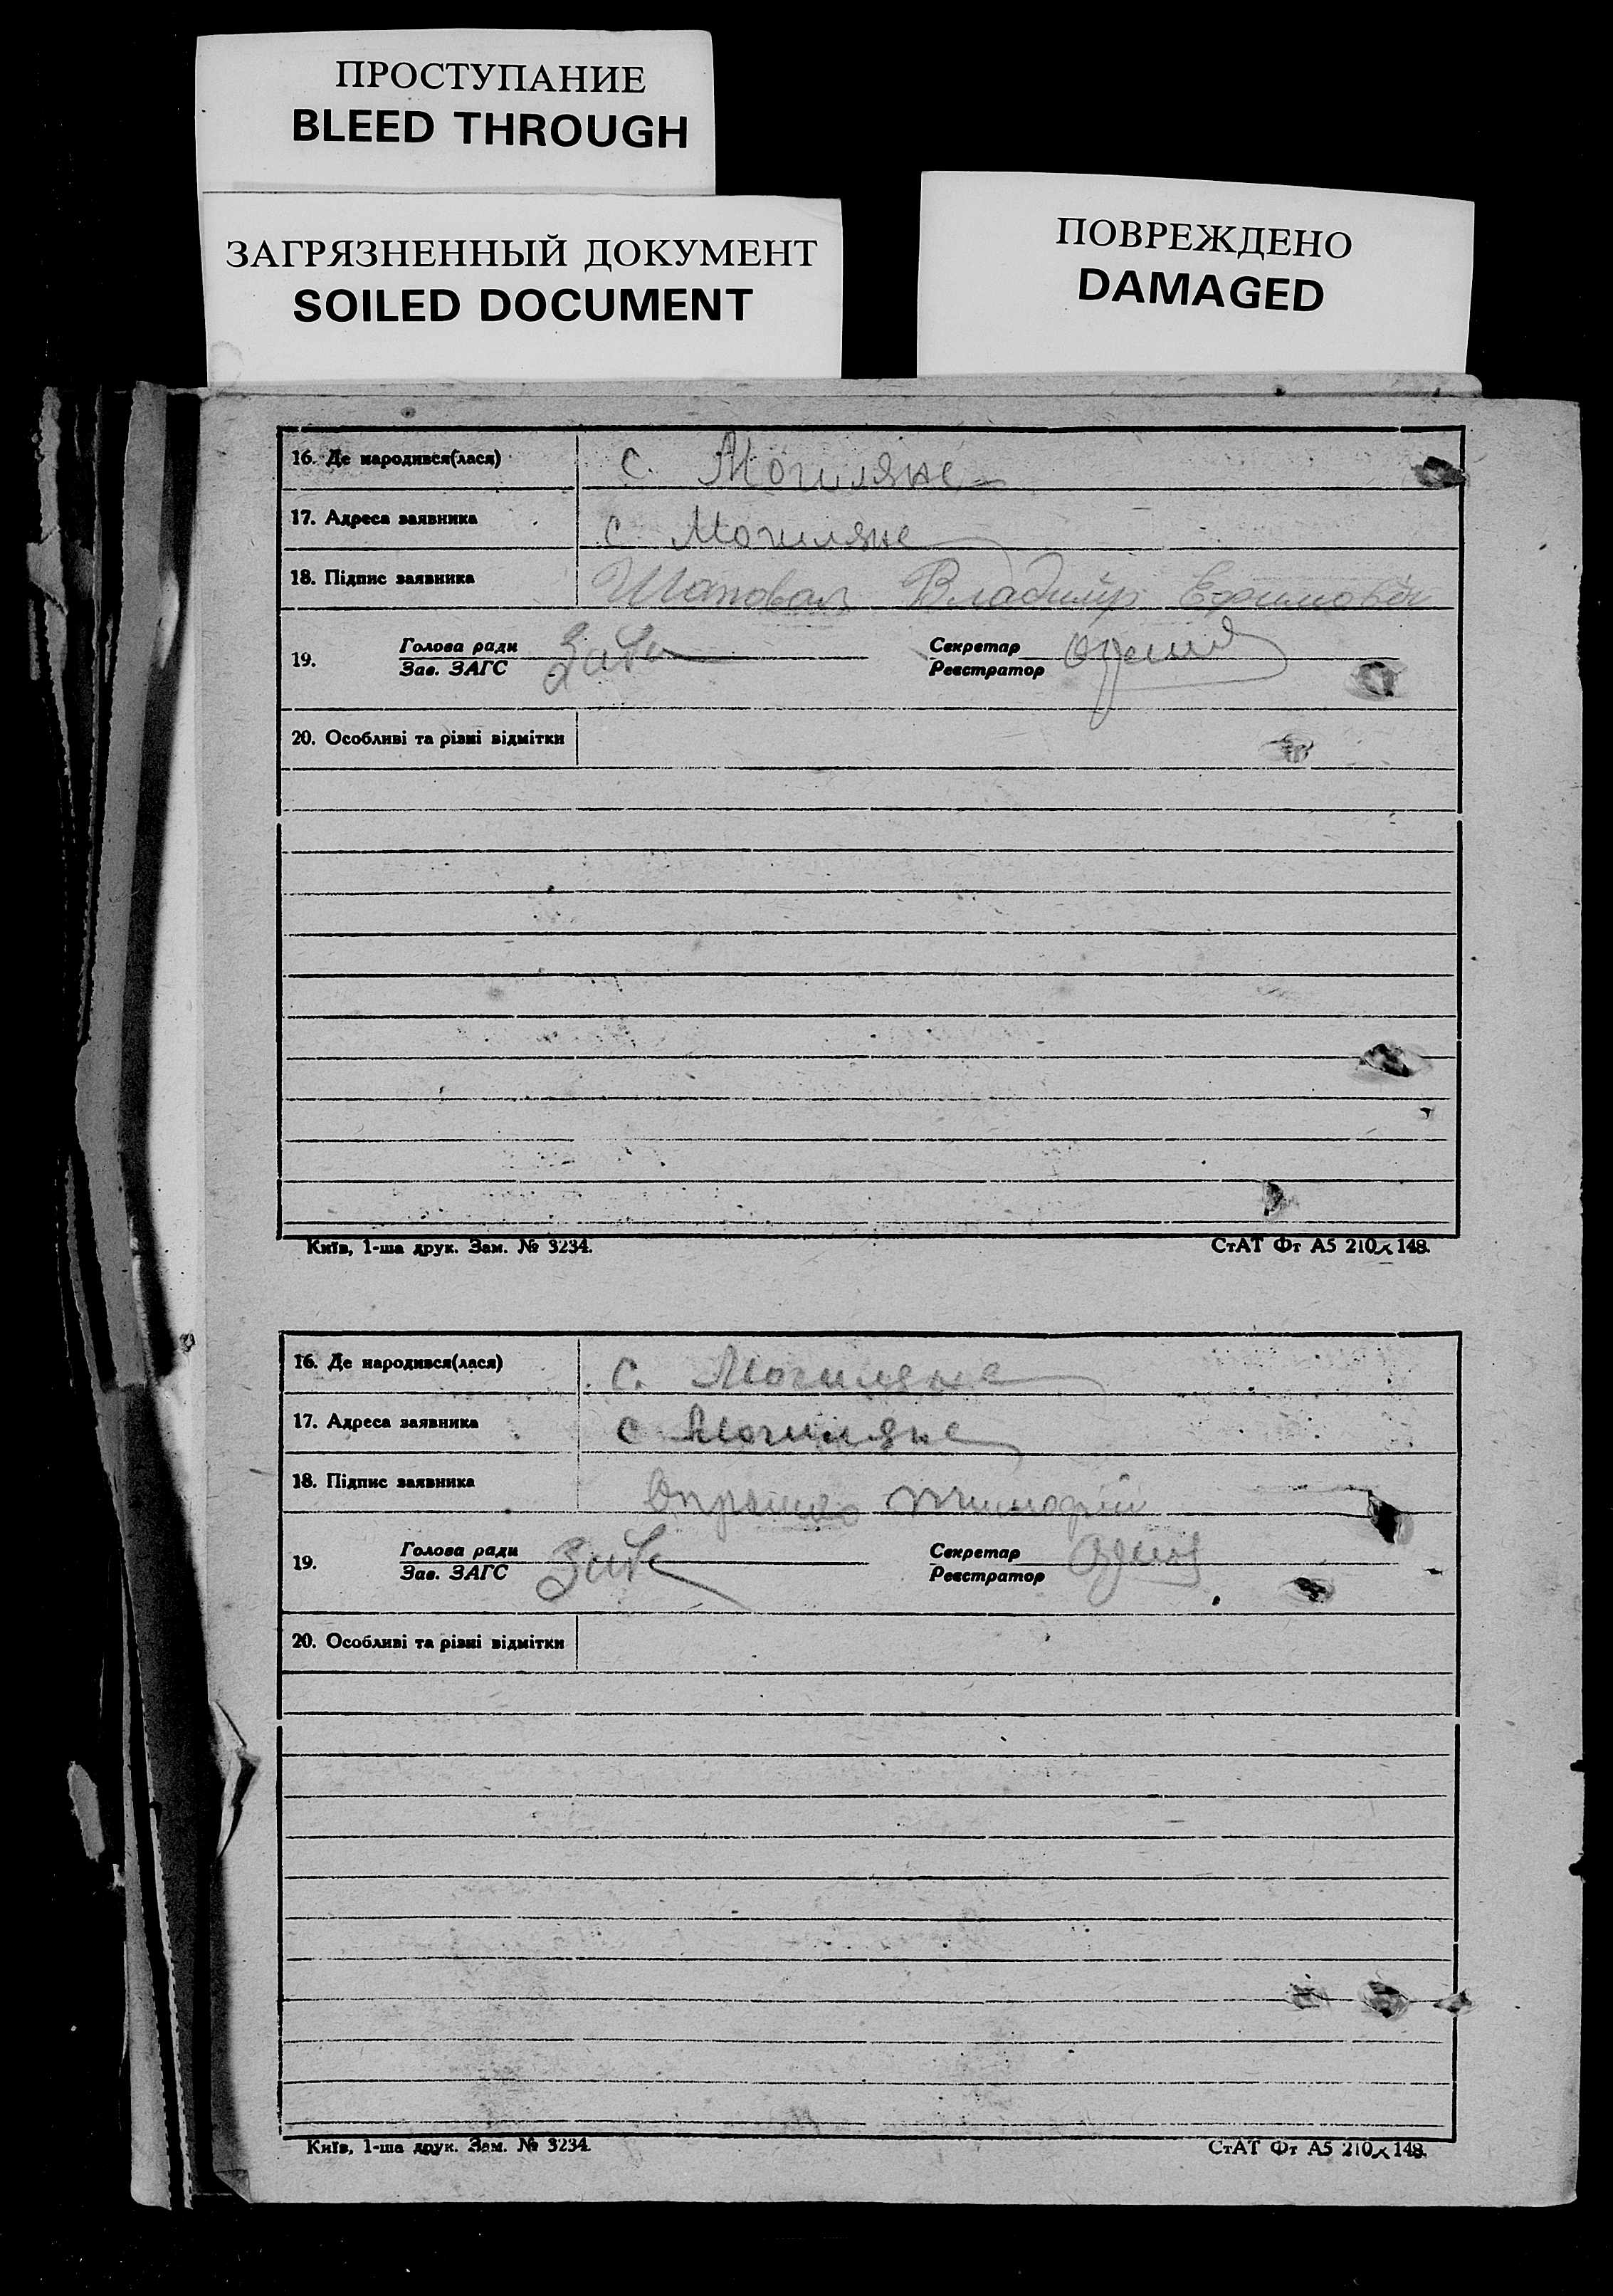 ПРОСТУПАНИЕ
BLEED THROUGH
ЗАГРЯЗНЕННЫЙ ДОКУМЕНТ
SOILED DOCUMENT
ПОВРЕЖДЕНО
DAMAGED
16. Де народився(лася) с. Могиляне
17. Адреса заявника с. Могиляне
18. Підпис заявника Шаповал Владимір
19. Голова ради Секретар
Зав. ЗАГС Реєстратор
20. Особливі та різні відмітки
Київ, 1-ша друк. Зам. № 3234. СтАТ Фт А5 210×148.
16. Де народився(лася) с. Могиляне
17. Адреса заявника с Могиляне
18. Підпис заявника
19. Голова ради Секретар
Зав. ЗАГС Реєстратор
20. Особливі та різні відмітки
Київ, 1-ша друк. Зам. № 3234. СтАТ Фт А5 210×148.